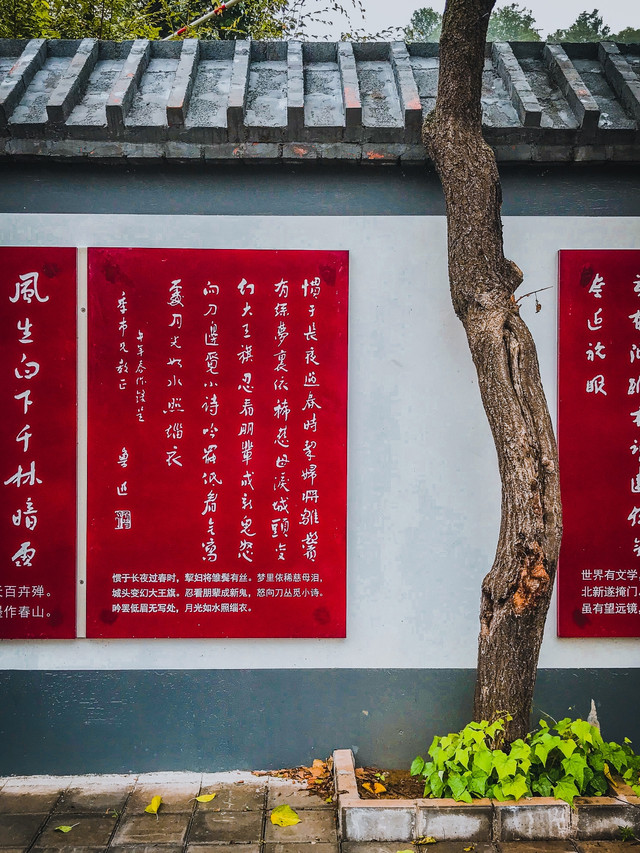 風生白下千林暗霧
天百卉殚。
墨作春山。
慣于長夜過春時挈婦將雛鬢
有絲夢裏依稀慈母淚城頭變
幻大王旗忍看朋輩成新鬼怒
向刀邊覓小詩吟罷低眉無寫
處月光如水照緇衣
年春作錄呈
季市兄教正
魯迅
惯于长夜过春时，挈妇将雏鬓有丝。梦里依稀慈母泪，
城头变幻大王旗。忍看朋辈成新鬼，怒向刀丛觅小诗。
吟罢低眉无写处，月光如水照缁衣。
奈近視眼
世界有文学，
北新遂掩门。
虽有望远镜，